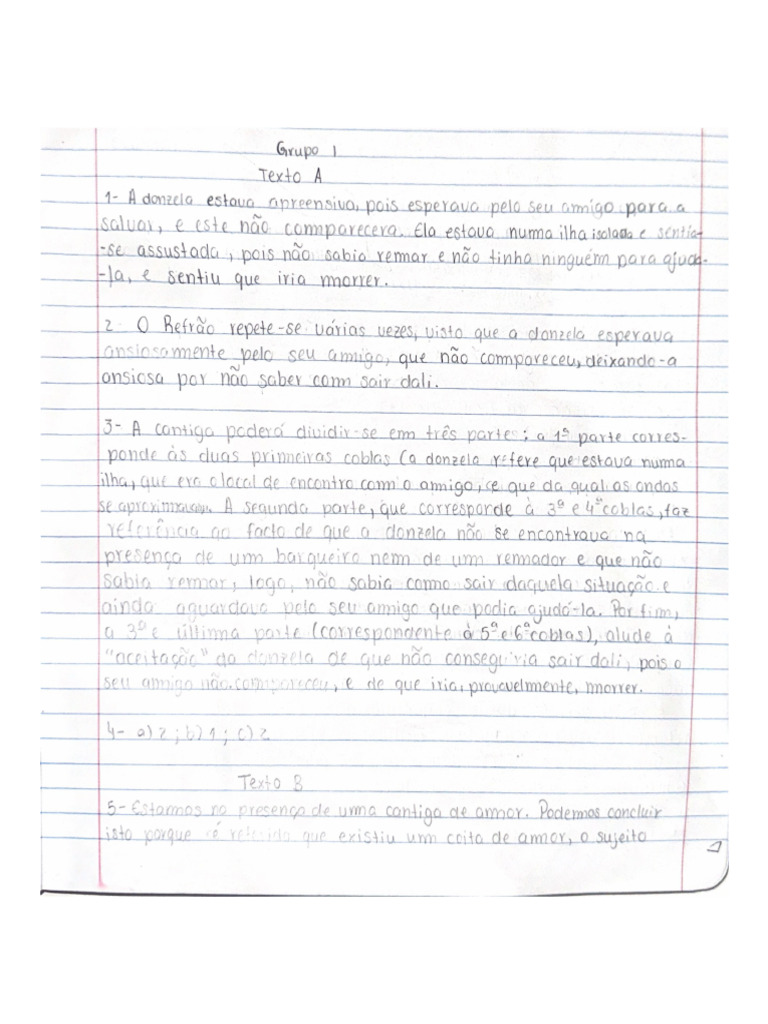 Grupo 1
Texto A
1- A donzela estava apreensiva, pois esperava pelo seu amigo para a
salvar, e este não comparecera. Ela estava numa ilha isolada e sentia-
-se assustada, pois não sabia remar e não tinha ninguém para ajudá-
-la, e sentiu que iria morrer.
2- O Refrão repete-se várias vezes, visto que a donzela esperava
ansiosamente pelo seu amigo, que não compareceu, deixando-a
ansiosa por não saber com sair dali.
3- A cantiga poderá dividir-se em três parte: a 1ª parte corres-
ponde às duas primeiras coblas (a donzela refere que estava numa
ilha, que era o local de encontro com o amigo, e que da qual as ondas
se aproximavam. A segunda parte, que corresponde à 3ª e 4ª coblas, faz
referência ao facto de que a donzela não se encontrava na
presença de um barqueiro nem de um remador e que não
sabia remar, logo, não sabia como sair daquela situação e
ainda aguardava pelo seu amigo que podia ajudá-la. Por fim,
a 3ª e última parte (correspondente à 5ª e 6ª coblas), alude à
"aceitação" da donzela de que não conseguiria sair dali, pois o
seu amigo não compareceu, e de que iria, provavelmente, morrer.
4- a) 2 ; b) 1 ; c) 2
Texto B
5- Estamos na presença de uma cantiga de amor. Podemos concluir
isto porque é referido que existiu um coita de amor, o sujeito